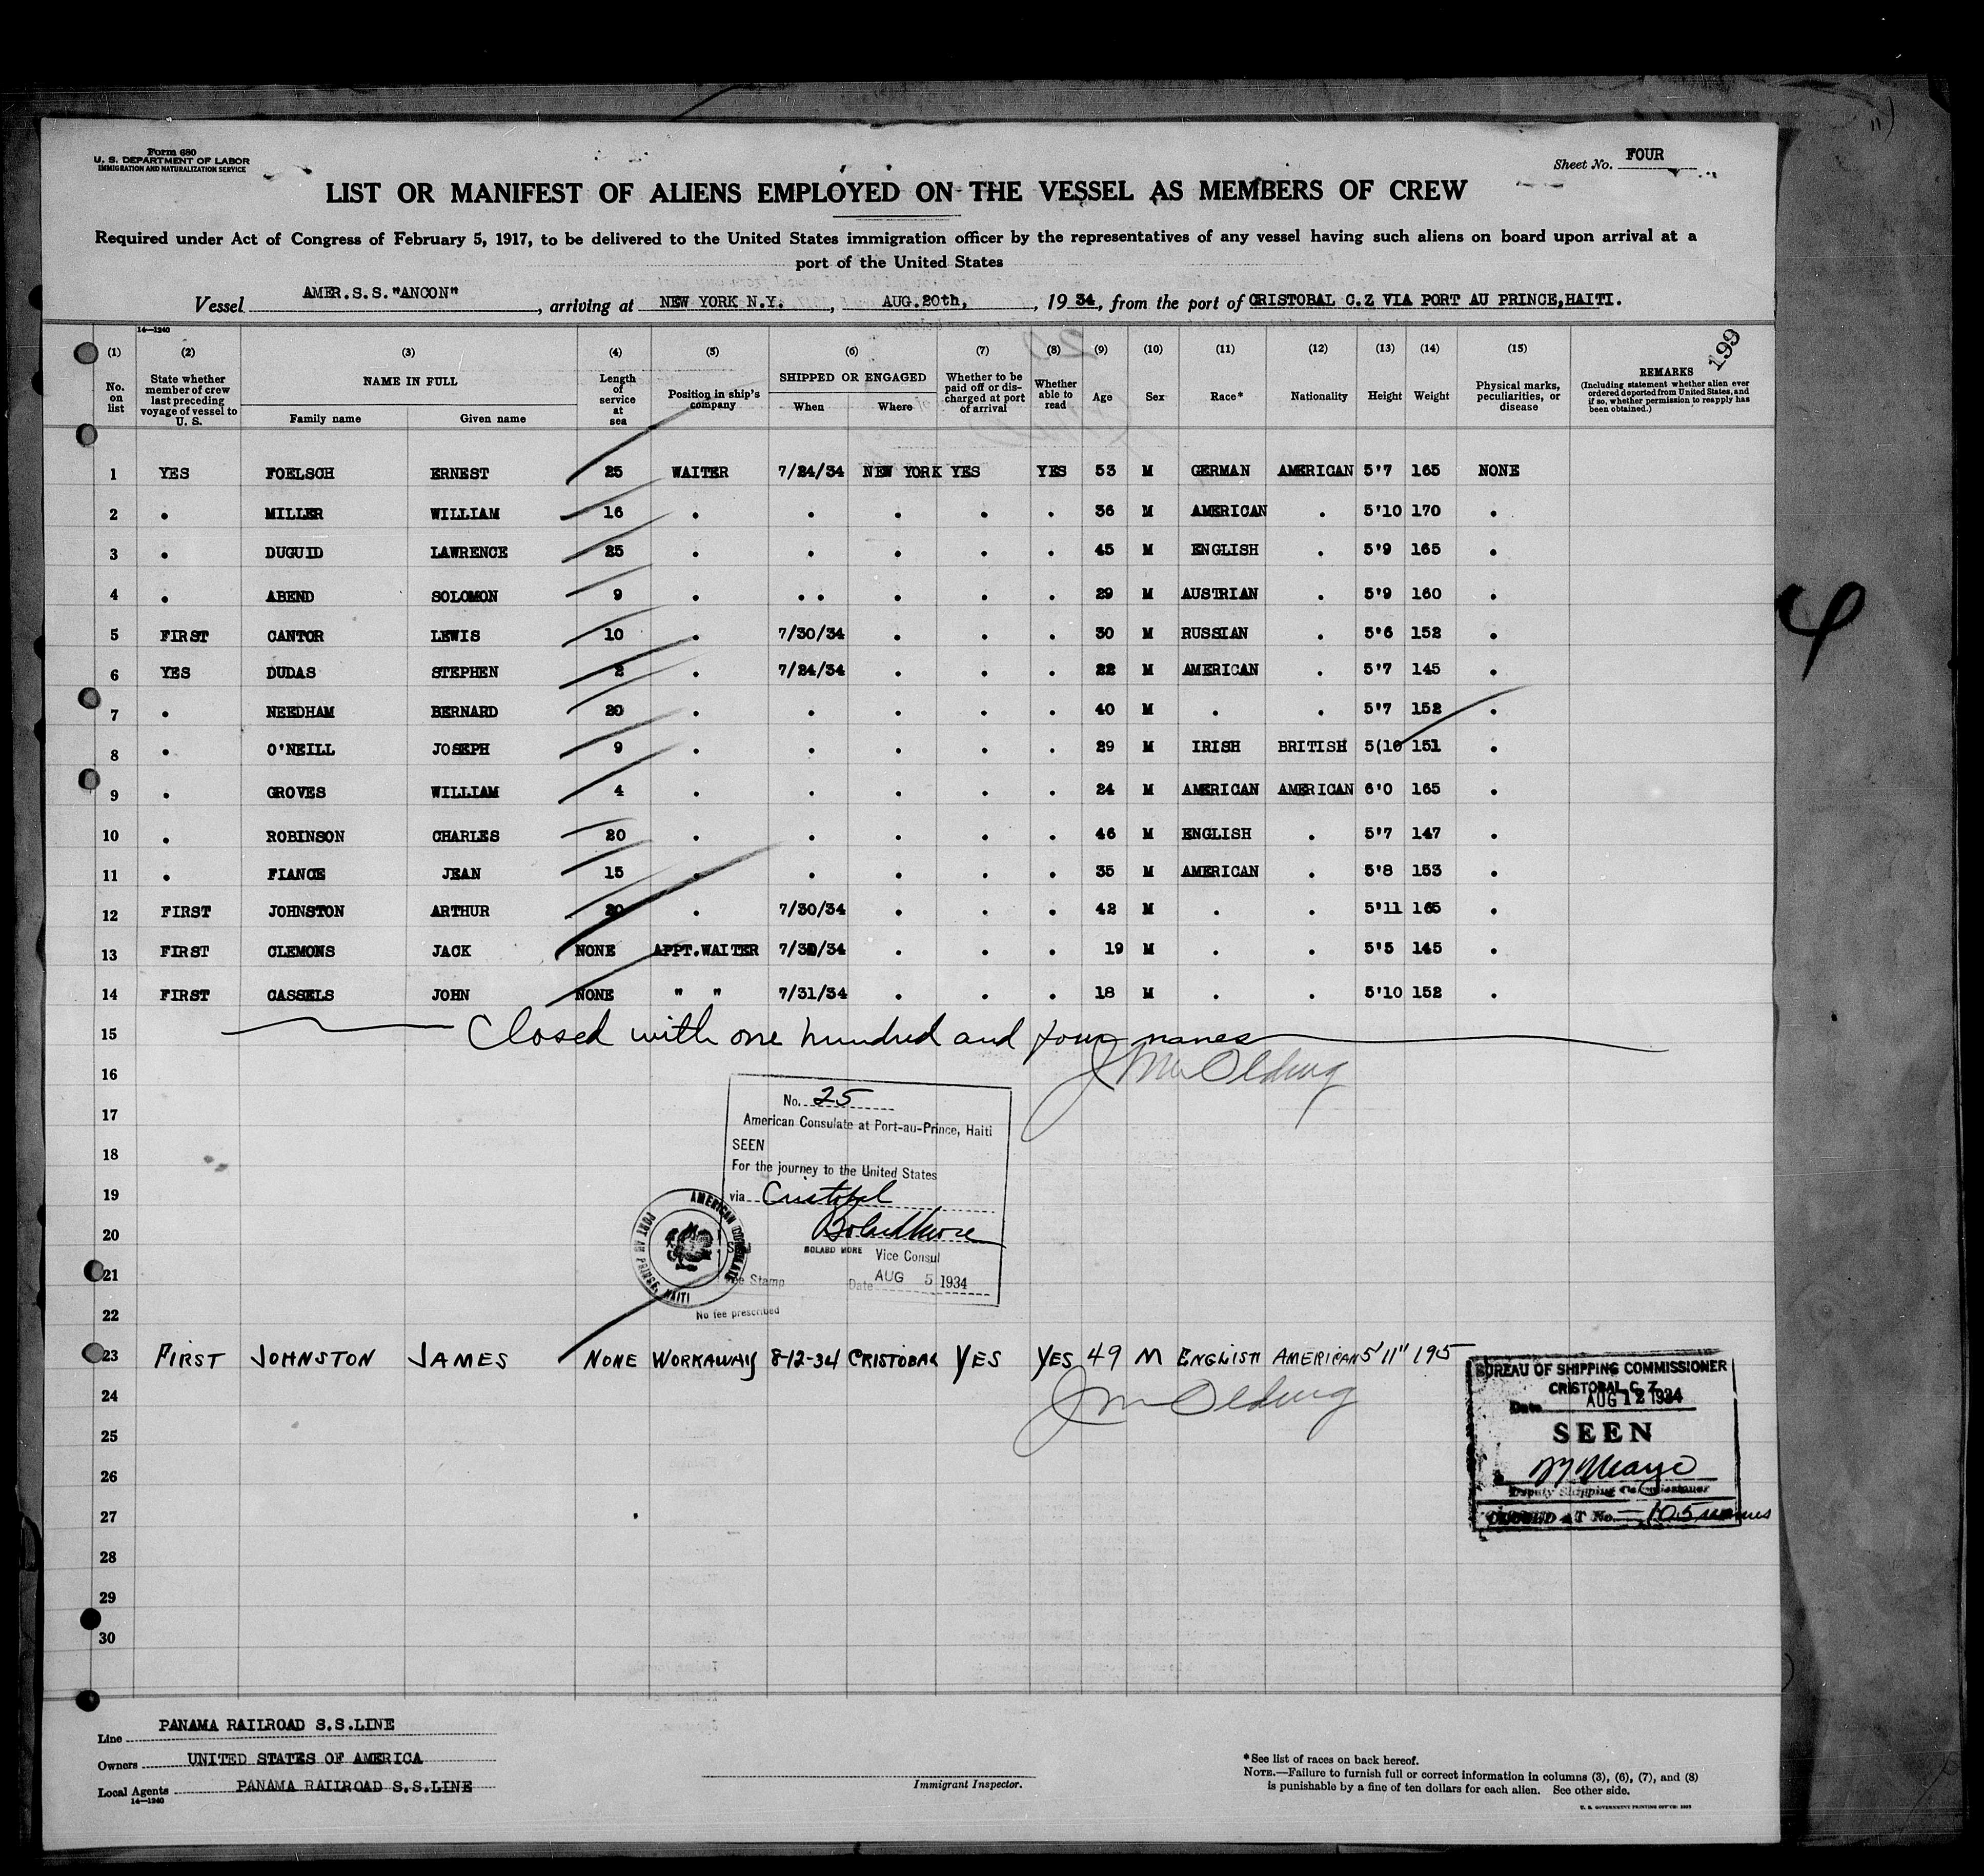 Form 680
U. S. DEPARTMENT OF LABOR
IMMIGRATION AND NATURALIZATION SERVICE
Sheet No. FOUR
LIST OR MANIFEST OF ALIENS EMPLOYED ON THE VESSEL AS MEMBERS OF CREW
Required under Act of Congress of February 5, 1917, to be delivered to the United States immigration officer by the representatives of any vessel having such aliens on board upon arrival at a
port of the United States
Vessel AMER.S.S."ANCON", arriving at NEW YORK N.Y., AUG.20th, 19 34, from the port of CRISTOBAL C.Z VIA PORT AU PRINCE,HAITI.
14—1240
199
(1) (2) (3) (4) (5) (6) (7) (8) (9) (10) (11) (12) (13) (14) (15)
No. on list
State whether member of crew last preceding voyage of vessel to U. S.
NAME IN FULL
Family name Given name
Length of service at sea
Position in ship's company
SHIPPED OR ENGAGED
When Where
Whether to be paid off or discharged at port of arrival
Whether able to read
Age Sex Race* Nationality Height Weight
Physical marks, peculiarities, or disease
REMARKS
(Including statement whether alien ever ordered deported from United States, and if so, whether permission to reapply has been obtained.)
1 YES FOELSCH ERNEST 25 WAITER 7/24/34 NEW YORK YES YES 53 M GERMAN AMERICAN 5'7 165 NONE
2 . MILLER WILLIAM 16 . . . . . 36 M AMERICAN . 5'10 170 .
3 . DUGUID LAWRENCE 25 . . . . . 45 M ENGLISH . 5'9 165 .
4 . ABEND SOLOMON 9 . . . . . 29 M AUSTRIAN . 5'9 160 .
5 FIRST CANTOR LEWIS 10 . 7/30/34 . . . 30 M RUSSIAN . 5'6 152 .
6 YES DUDAS STEPHEN 2 . 7/24/34 . . . 22 M AMERICAN . 5'7 145 .
7 . NEEDHAM BERNARD 20 . . . . . 40 M . . 5'7 152 .
8 . O'NEILL JOSEPH 9 . . . . . 29 M IRISH BRITISH 5(10 151 .
9 . GROVES WILLIAM 4 . . . . . 24 M AMERICAN AMERICAN 6'0 165 .
10 . ROBINSON CHARLES 20 . . . . . 46 M ENGLISH . 5'7 147 .
11 . FIANCE JEAN 15 . . . . . 35 M AMERICAN . 5'8 153 .
12 FIRST JOHNSTON ARTHUR 20 . 7/30/34 . . . 42 M . . 5'11 165 .
13 FIRST CLEMONS JACK NONE APPT.WAITER 7/30/34 . . . 19 M . . 5'5 145 .
14 FIRST CASSELS JOHN NONE " " 7/31/34 . . . 18 M . . 5'10 152 .
15 Closed with one hundred and four names
16 J M Olding
17
No. 25
American Consulate at Port-au-Prince, Haiti
18
SEEN
For the journey to the United States
19
via Cristobal
20
BOLARD MORE Vice Consul
21
Fee Stamp Date AUG 5 1934
No fee prescribed
AMERICAN CONSULATE
PORT AU PRINCE, HAITI
22
23 FIRST JOHNSTON JAMES NONE WORKAWAY 8-12-34 CRISTOBAL YES YES 49 M ENGLISH AMERICAN 5'11" 195
24 J M Olding
25
26
27
28
29
30
BUREAU OF SHIPPING COMMISSIONER
CRISTOBAL C. Z.
Date AUG 12 1934
SEEN
Deputy Shipping Commissioner
CLOSED AT No. — 105 names
4
Line PANAMA RAILROAD S.S.LINE
Owners UNITED STATES OF AMERICA
Local Agents PANAMA RAILROAD S.S.LINE
14—1240
Immigrant Inspector.
*See list of races on back hereof.
NOTE.—Failure to furnish full or correct information in columns (3), (6), (7), and (8)
is punishable by a fine of ten dollars for each alien. See other side.